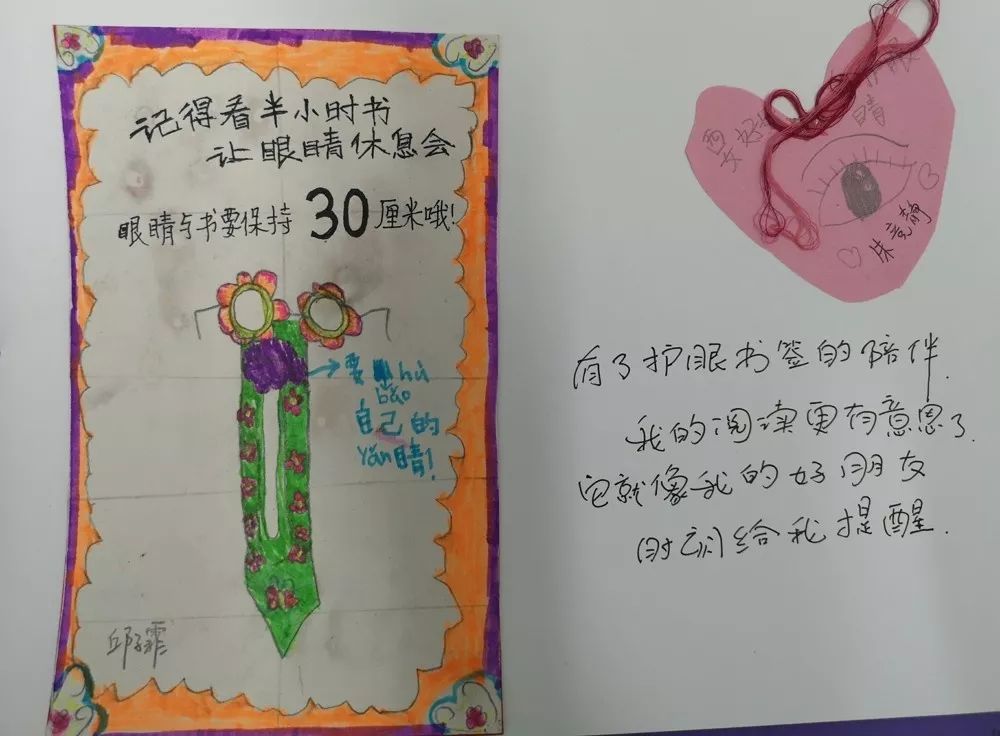 记得看半小时书
让眼睛休息会
眼睛与书要保持30厘米哦!
要hù
bǎo
自己的
yǎn睛!
邱霏
要好
眼
睛
朱
静
有了护眼书签的陪伴.
我的阅读更有意思了.
它就像我的好朋友
时刻给我提醒.